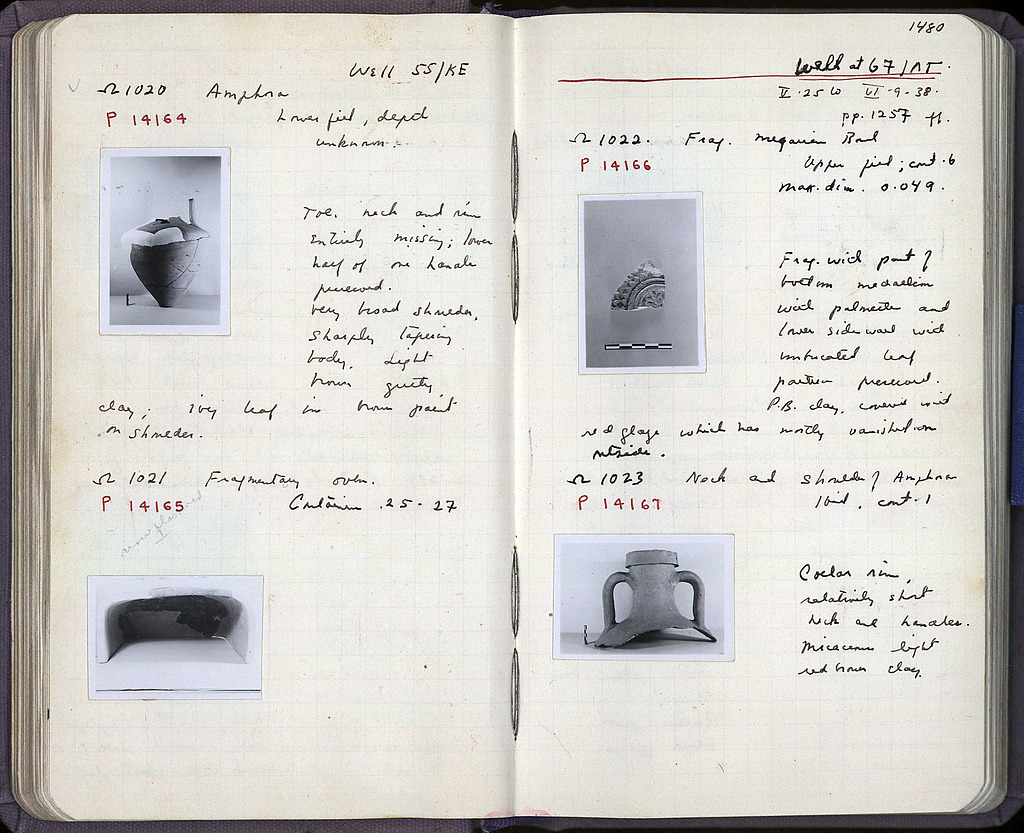 Well 55/KE
Ω 1020 Amphora
P 14164 Lower fill, depth
unknown.
Toe, neck and rim
entirely missing; lower
half of one handle
preserved.
Very broad shoulder,
sharply tapering
body. Light
brown gritty
clay; ivy leaf in brown paint
on shoulder.
Ω 1021 Fragmentary oven.
P 14165 Container 25-27
1480
Well at 67/ΛΓ.
II·25 to VI·9·38.
pp. 1257 ff.
Ω 1022. Frag. Megarian Bowl
P 14166 Upper fill; cont. 6
Max. dim. 0.049.
Frag. with part of
bottom medallion
with palmettes and
lower side wall with
imbricated leaf
pattern preserved.
P.B. clay, covered with
red glaze which has mostly vanished on
outside.
Ω 1023 Neck and shoulder of Amphora
P 14167 Ibid., cont. 1
Collar rim,
relatively short
neck and handles.
Micaceous light
red brown clay.